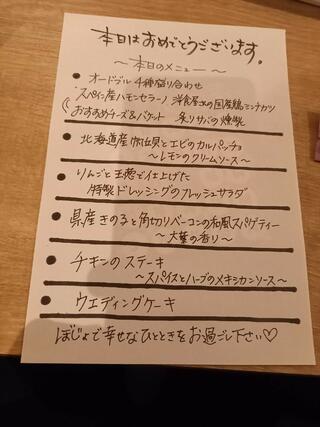 本日はおめでとうございます。
～本日のメニュー～
● オードブル 4種盛り合わせ
(スペイン産ハモンセラーノ 洋食屋さんの国産鶏ミンチカツ
おすすめチーズ&バケット 炙りサバの燻製
● 北海道産帆立貝とエビのカルパッチョ
～レモンのクリームソース～
● りんごと玉葱で仕上げた
特製ドレッシングのフレッシュサラダ
● 県産きのこと角切りベーコンの和風スパゲティー
～大葉の香り～
● チキンのステーキ
～スパイスとハーブのメキシカンソース～
● ウエディングケーキ
ぽじょで幸せなひとときをお過ごし下さい♡